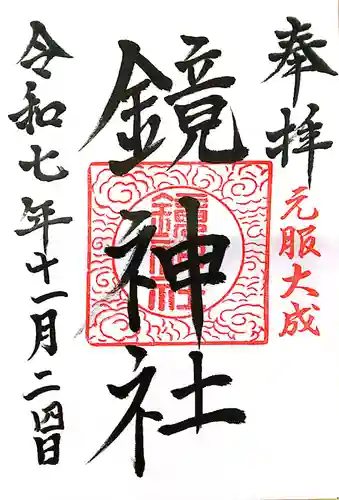 奉拝
元服大成
鏡神社
鏡神社
令和七年十一月二四日